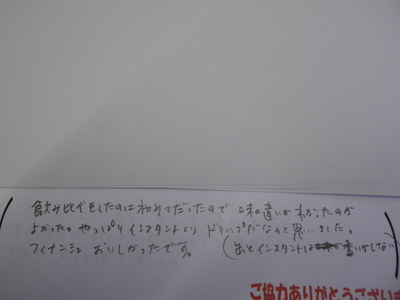 飲み比べをしたのは初めてだったので 味の違いがわかったのが
よかった。やっぱりインスタントより ドリップだなって思いました。
フィナンシェ おいしかったです。(あとインスタントは 香りがしない)
ご協力ありがとうござい